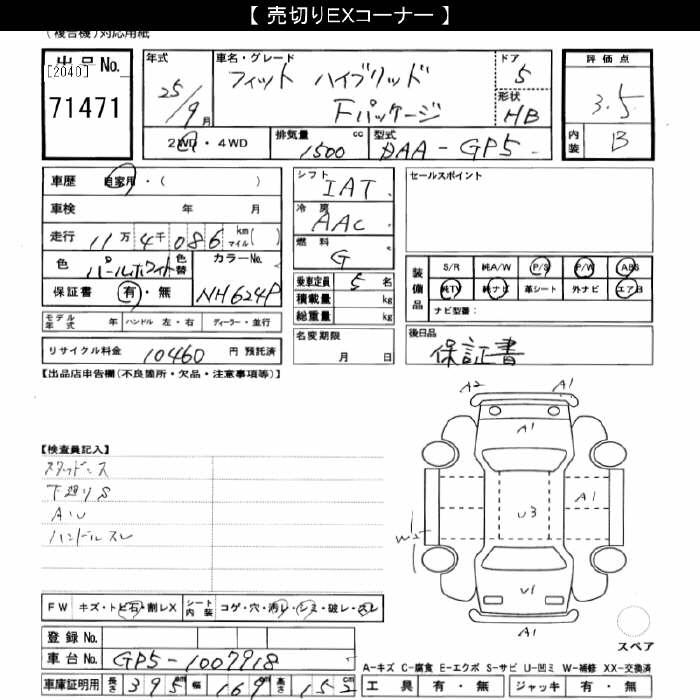 【 売切りEXコーナー 】
(複合機)対応用紙
出品No.
[2040]
71471
年式
25/9月
車名・グレード
フィット ハイブリッド
Fパッケージ
ドア
5
形状
HB
評価点
3.5
内装
B
2WD・4WD
排気量
1500 cc
型式
DAA-GP5
車歴 自家用・( )
車検 年 月
走行 11万4千086 km マイル( )
色 パールホワイト 色替
カラーNo.
NH624P
保証書 有・無
モデル年式 年 ハンドル 左・右 ディーラー・並行
リサイクル料金 10460 円 預託済
シフト
IAT
冷房
AAC
燃料
G
乗車定員 5 名
積載量 kg
総重量 kg
名変期限
月 日
セールスポイント
装備品
S/R 純A/W P/S P/W ABS
純TV 純ナビ 革シート 外ナビ エアB
ナビ型番:
後日品
保証書
【出品店申告欄(不良箇所・欠品・注意事項等)】
【検査員記入】
スタッドレス
下廻りS
AU
ハンドルスレ
A2 A1
A1
A1
U3
W2
U1
A1
スペア
FW キズ・トビ石・割レX
シート内装 コゲ・穴・汚レ・シミ・破レ・スレ
登録No.
車台No. GP5-1007918
車庫証明用 長さ 395 幅 169 高さ 152
A-キズ C-腐食 E-エクボ S-サビ U-凹ミ W-補修 XX-交換済
工具 有・無 ジャッキ 有・無